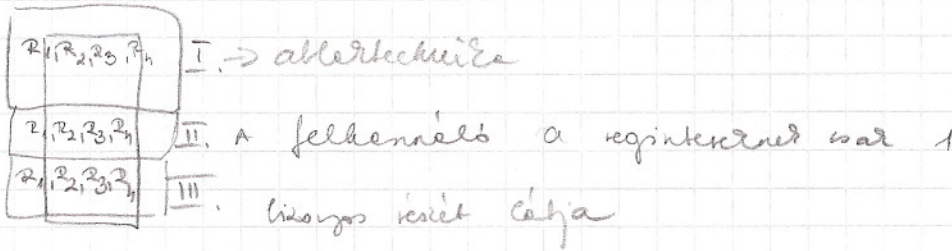 R1, R2, R3, R4 I. -> ablaktechnika
R1, R2, R3, R4 II. A felhasználó a regisztereknek csak 1
R1, R2, R3, R4 III. bizonyos részét látja